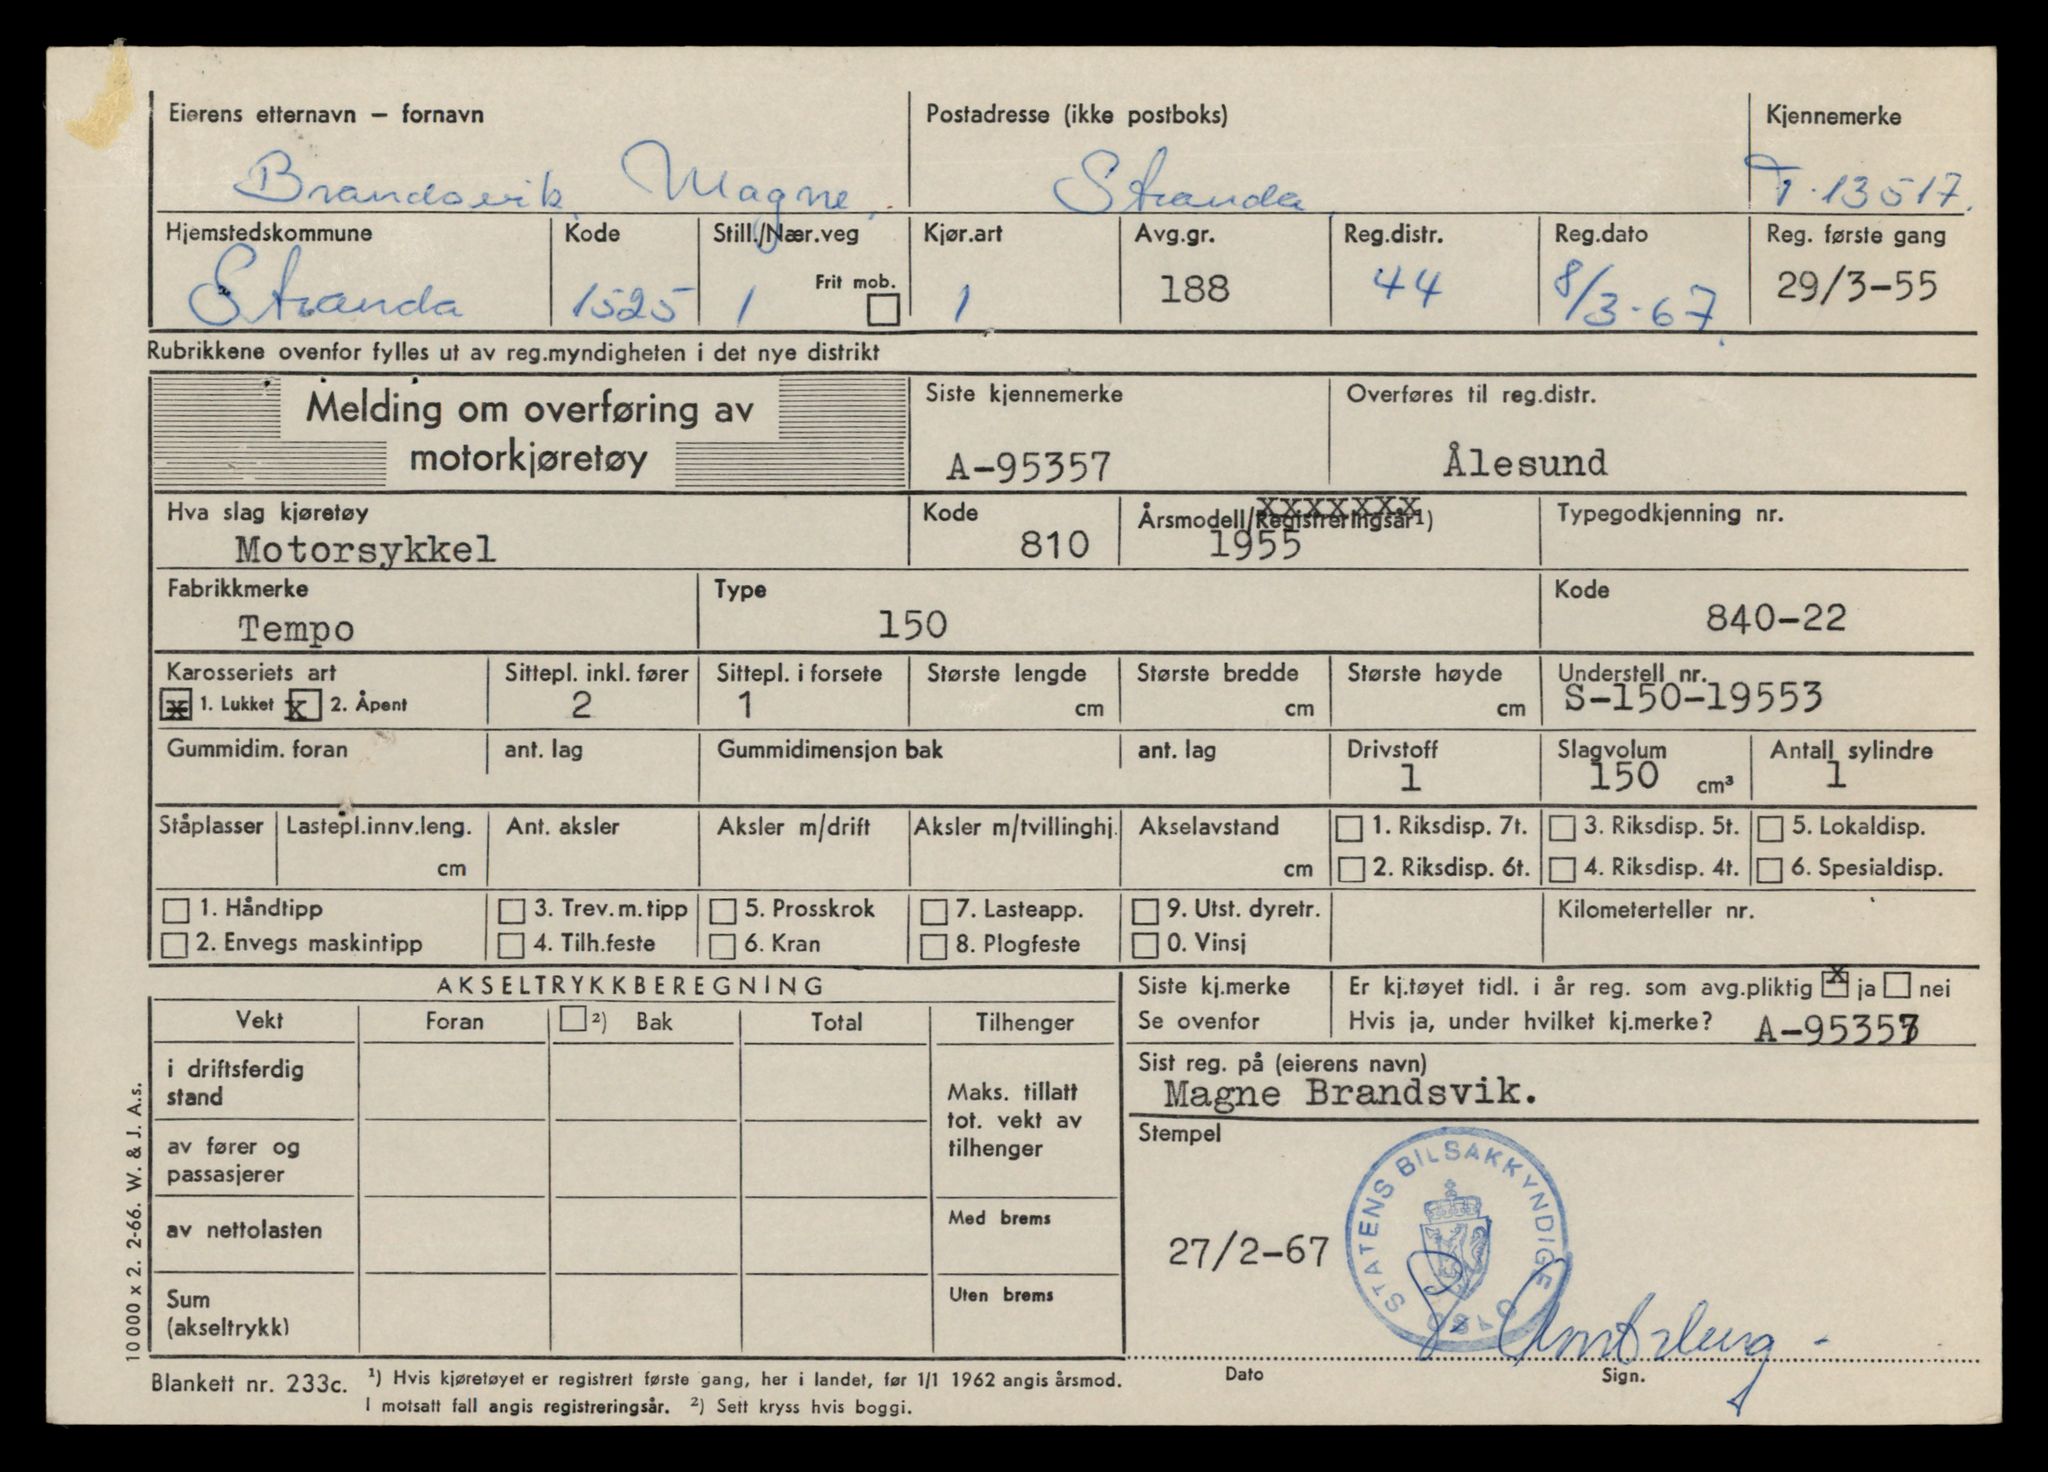 Eierens etternavn – fornavn Postadresse (ikke postboks) Kjennemerke
Brandsvik, Magne. Stranda, T-13517.
Hjemstedskommune Kode Still./Nær.veg Kjør.art Avg.gr. Reg.distr. Reg.dato Reg. første gang
Stranda 1525 1 Frit mob. 1 188 44 8/3-67. 29/3-55
Rubrikkene ovenfor fylles ut av reg.myndigheten i det nye distrikt
Melding om overføring av
motorkjøretøy
Siste kjennemerke Overføres til reg.distr.
A-95357 Ålesund
Hva slag kjøretøy Kode Årsmodell/Registreringsår¹) Typegodkjenning nr.
xxxxxxx
Motorsykkel 810 1955
Fabrikkmerke Type Kode
Tempo 150 840-22
Karosseriets art Sittepl. inkl. fører Sittepl. i forsete Største lengde Største bredde Største høyde Understell nr.
x 1. Lukket x 2. Åpent 2 1 cm cm cm S-150-19553
Gummidim. foran ant. lag Gummidimensjon bak ant. lag Drivstoff Slagvolum Antall sylindre
1 150 cm³ 1
Ståplasser Lastepl.innv.leng. Ant. aksler Aksler m/drift Aksler m/tvillinghj. Akselavstand 1. Riksdisp. 7t. 3. Riksdisp. 5t. 5. Lokaldisp.
cm cm 2. Riksdisp. 6t. 4. Riksdisp. 4t. 6. Spesialdisp.
1. Håndtipp 3. Trev. m. tipp 5. Prosskrok 7. Lasteapp. 9. Utst. dyretr. Kilometerteller nr.
2. Envegs maskintipp 4. Tilh.feste 6. Kran 8. Plogfeste 0. Vinsj
AKSELTRYKKBEREGNING
Vekt Foran ²) Bak Total Tilhenger
i driftsferdig
stand
Maks. tillatt
tot. vekt av
tilhenger
av fører og
passasjerer
av nettolasten Med brems
Sum
(akseltrykk)
Uten brems
Siste kj.merke Er kj.tøyet tidl. i år reg. som avg.pliktig x ja nei
Se ovenfor Hvis ja, under hvilket kj.merke? A-95357
Sist reg. på (eierens navn)
Magne Brandsvik.
Stempel
STATENS BILSAKKYNDIGE OSLO
27/2-67
Dato Sign.
10 000 x 2. 2-66. W. & J. A.s.
Blankett nr. 233c. ¹) Hvis kjøretøyet er registrert første gang, her i landet, før 1/1 1962 angis årsmod.
I motsatt fall angis registreringsår. ²) Sett kryss hvis boggi.